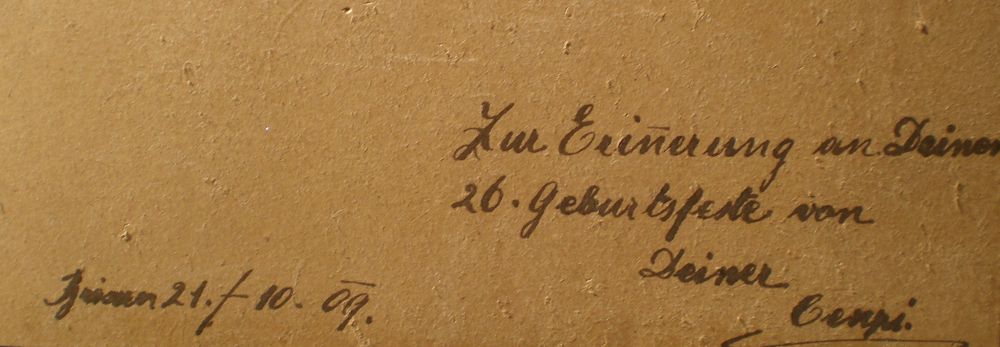 Zur Erin̄erung an Deinen
26. Geburtsfeste von
Deiner
Cenzi.
Brixen 21./10. 09.